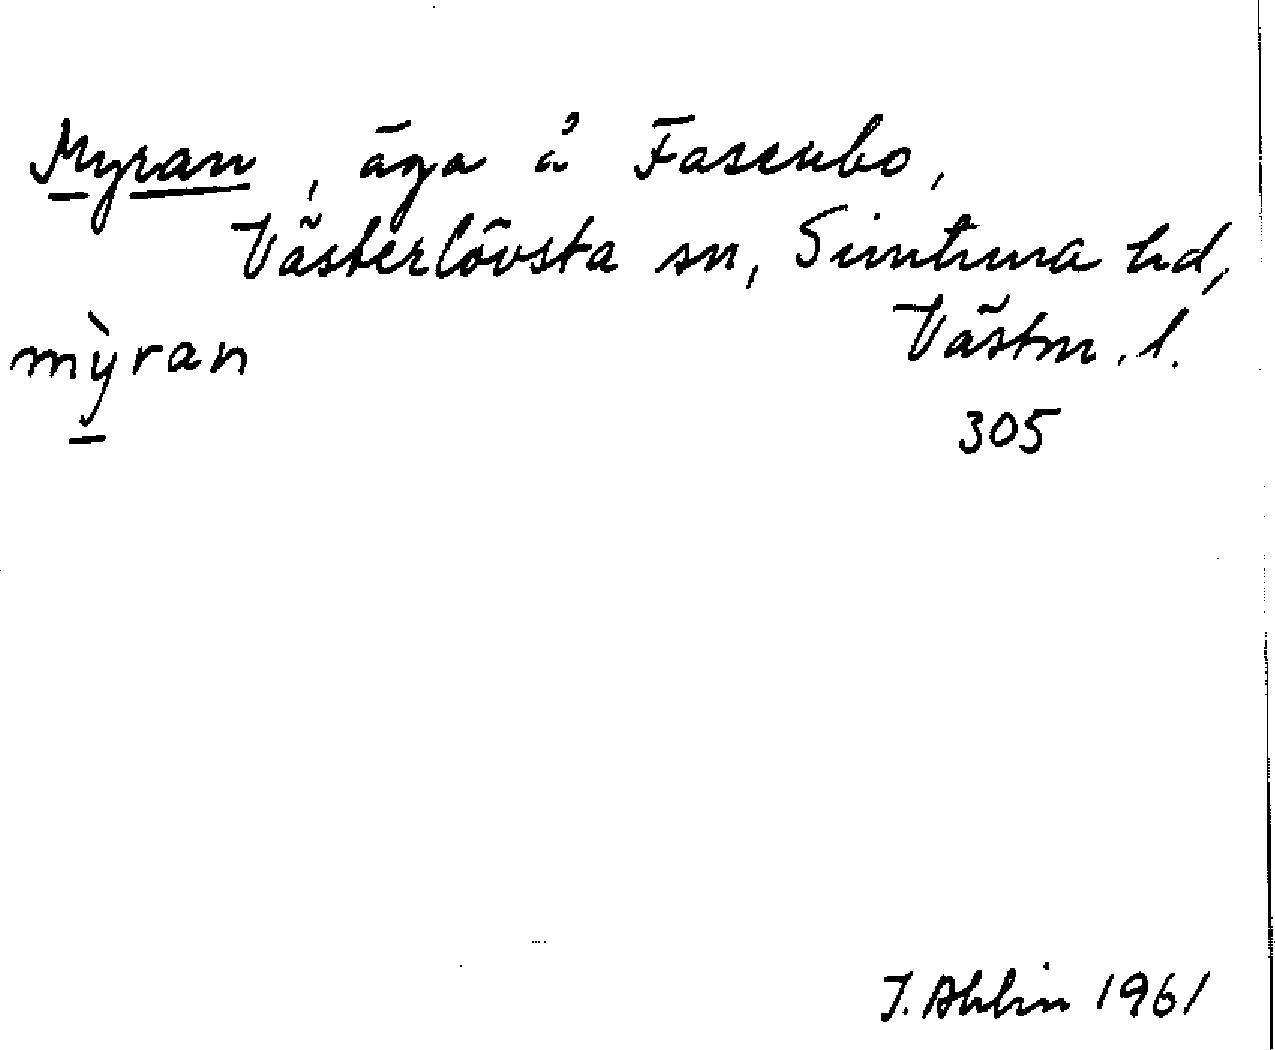 Myran, äga å Fasenbo,
Västerlövsta sn, Simtuna hd,
Västm. l.
mỳran
305
J. Ahlin 1961